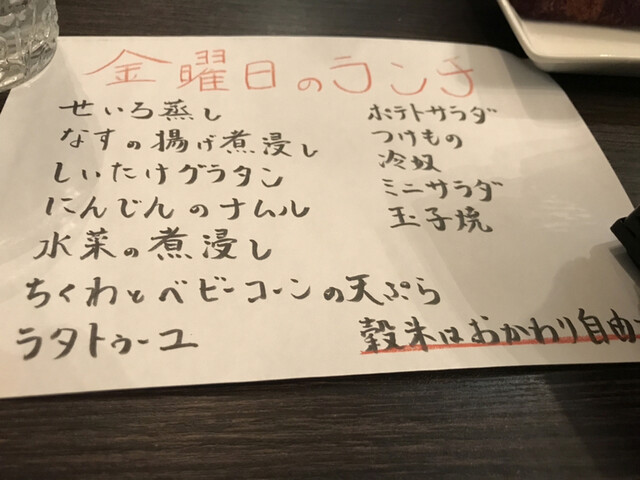 金曜日のランチ
せいろ蒸し
なすの揚げ煮浸し
しいたけグラタン
にんじんのナムル
水菜の煮浸し
ちくわとベビーコーンの天ぷら
ラタトゥーユ
ポテトサラダ
つけもの
冷奴
ミニサラダ
玉子焼
穀米はおかわり自由